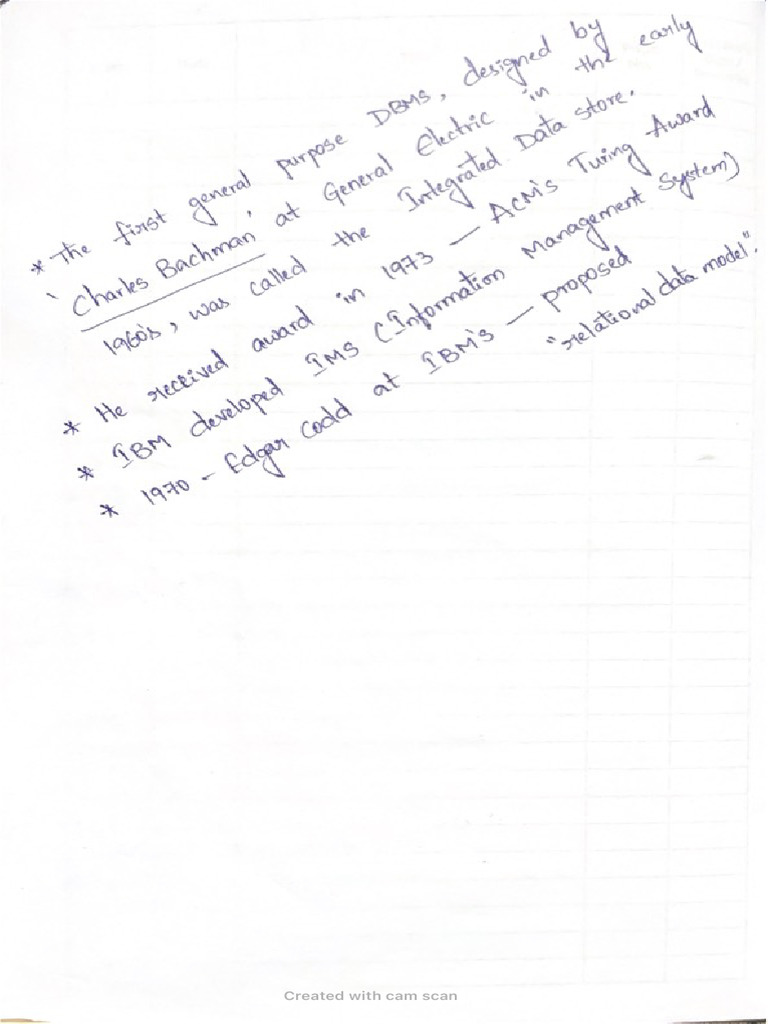 * The first general purpose DBMS, designed by
'Charles Bachman' at General Electric in the early
1960's, was called the Integrated Data store.
* He received award in 1973 — ACM's Turing Award
* IBM developed IMS (Information Management System)
* 1970 - Edgar Codd at IBM's — proposed
"relational data model".
Created with cam scan